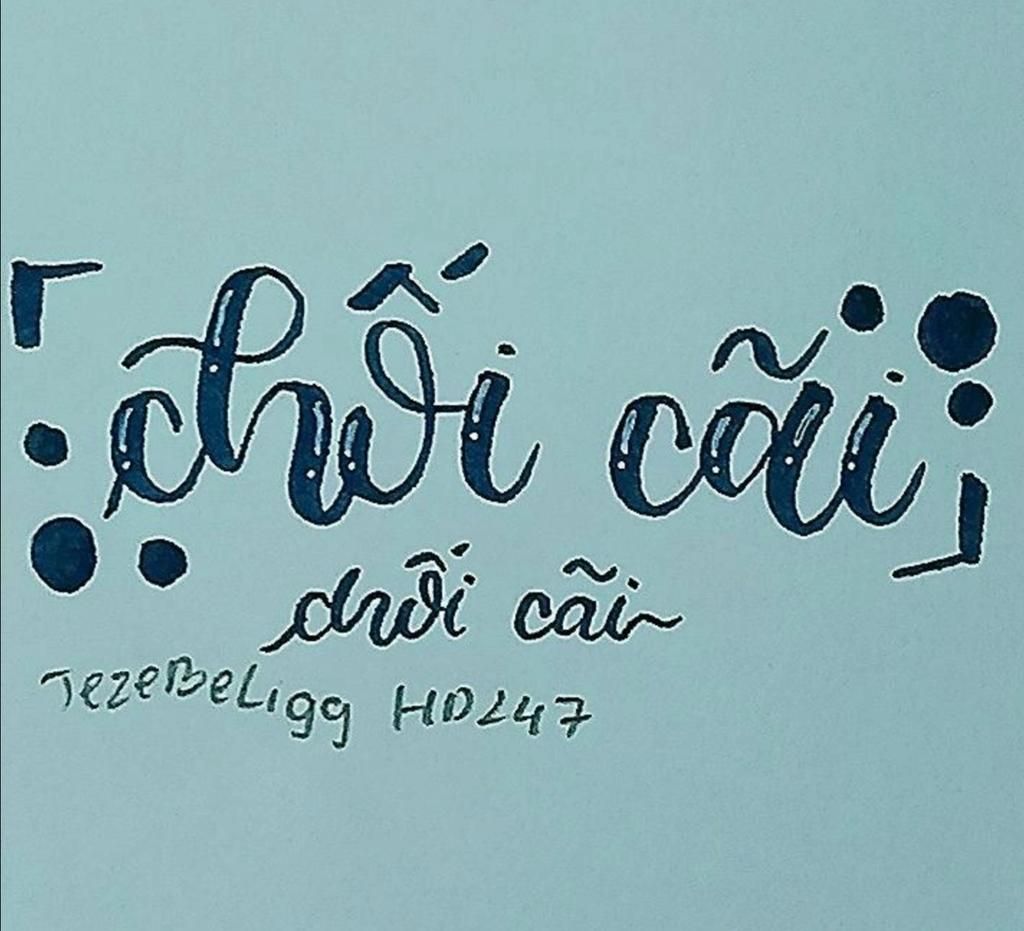 chối cãi
chối cãi
JezeBeLigg HDL47